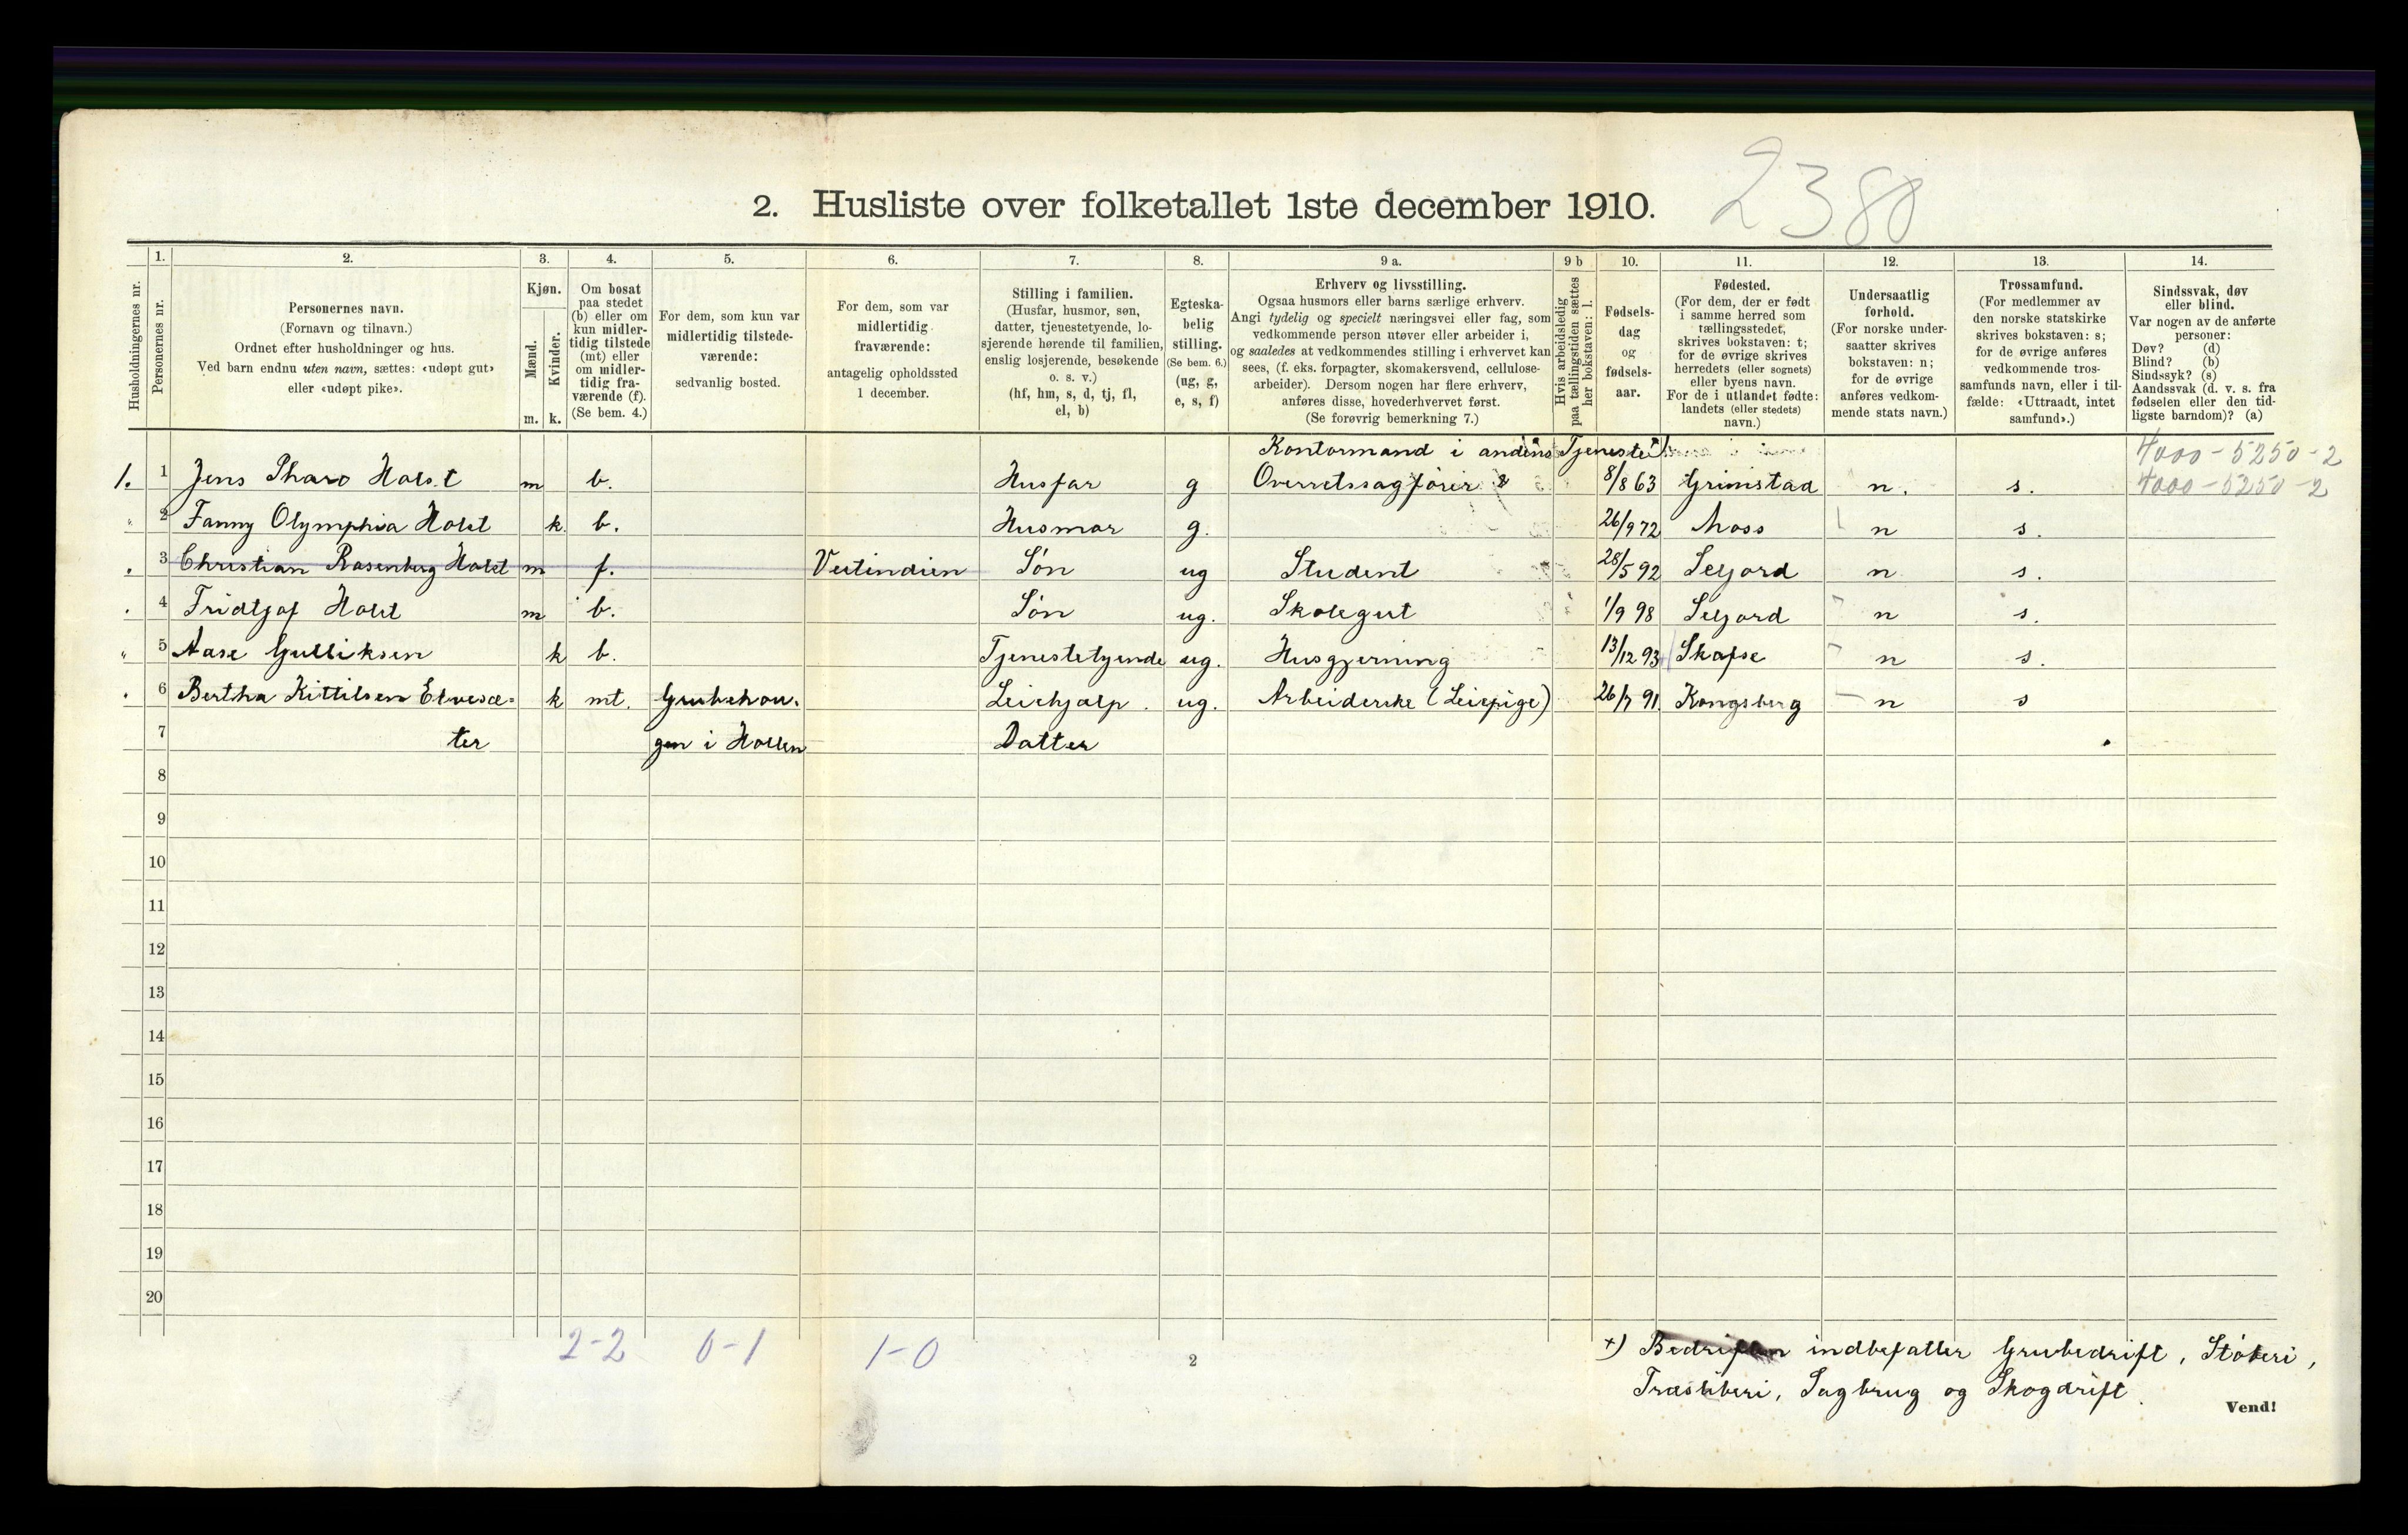 2. Husliste over folketallet 1ste december 1910.
2380
Husholdningernes nr.
1. Personernes nr.
2. Personernes navn. (Fornavn og tilnavn.) Ordnet efter husholdninger og hus. Ved barn endnu uten navn, sættes: «udøpt gut» eller «udøpt pike».
3. Kjøn. Mænd. m. Kvinder. k.
4. Om bosat paa stedet (b) eller om kun midlertidig tilstede (mt) eller om midlertidig fraværende (f). (Se bem. 4.)
5. For dem, som kun var midlertidig tilstedeværende: sedvanlig bosted.
6. For dem, som var midlertidig fraværende: antagelig opholdssted 1 december.
7. Stilling i familien. (Husfar, husmor, søn, datter, tjenestetyende, losjerende hørende til familien, enslig losjerende, besøkende o. s. v.) (hf, hm, s, d, tj, fl, el, b)
8. Egteskabelig stilling. (Se bem. 6.) (ug, g, e, s, f)
9 a. Erhverv og livsstilling. Ogsaa husmors eller barns særlige erhverv. Angi tydelig og specielt næringsvei eller fag, som vedkommende person utøver eller arbeider i, og saaledes at vedkommendes stilling i erhvervet kan sees, (f. eks. forpagter, skomakersvend, cellulosearbeider). Dersom nogen har flere erhverv, anføres disse, hovederhvervet først. (Se forøvrig bemerkning 7.)
9 b Hvis arbeidsledig paa tællingstiden sættes her bokstaven: l.
10. Fødselsdag og fødselsaar.
11. Fødested. (For dem, der er født i samme herred som tællingsstedet, skrives bokstaven: t; for de øvrige skrives herredets (eller sognets) eller byens navn. For de i utlandet fødte: landets (eller stedets) navn.)
12. Undersaatlig forhold. (For norske undersaatter skrives bokstaven: n; for de øvrige anføres vedkommende stats navn.)
13. Trossamfund. (For medlemmer av den norske statskirke skrives bokstaven: s; for de øvrige anføres vedkommende trossamfunds navn, eller i tilfælde: «Uttraadt, intet samfund».)
14. Sindssvak, døv eller blind. Var nogen av de anførte personer: Døv? (d) Blind? (b) Sindssyk? (s) Aandssvak (d. v. s. fra fødselen eller den tidligste barndom)? (a)
Kontormand i andens Tjeneste 4000-5250-2
1. 1 Jens Pharo Holst m b. Husfar g Overretssagfører 8/8 63 Grimstad n. s. 4000-5250-2
2 Fanny Olymphia Holst k. b. Husmor g. 26/9 72 Moss n s.
3 Christian Rosenberg Holst m f. Vestindien Søn ug Student 28/5 92 Seljord n s.
4 Fridtjof Holst m b. Søn ug. Skolegut 1/9 98 Seljord n s.
5 Aase Gulliksen k b. Tjenestetyende ug. Husgjerning 13/12 93 Skafse n s.
6 Bertha Kittilsen Elvesæ= k mt. Grubehou= Leiehjælp. ug. Arbeiderske (Leiepige) 26/7 91. Kongsberg n s
7 ter gen i Hollen Datter
8
9
10
11
12
13
14
15
16
17
18
19
20
2-2 0-1 1-0
2
+) Bedriften indbefatter Grubedrift, Støberi,
Træsliberi, Sagbrug og Skogdrift.
Vend!